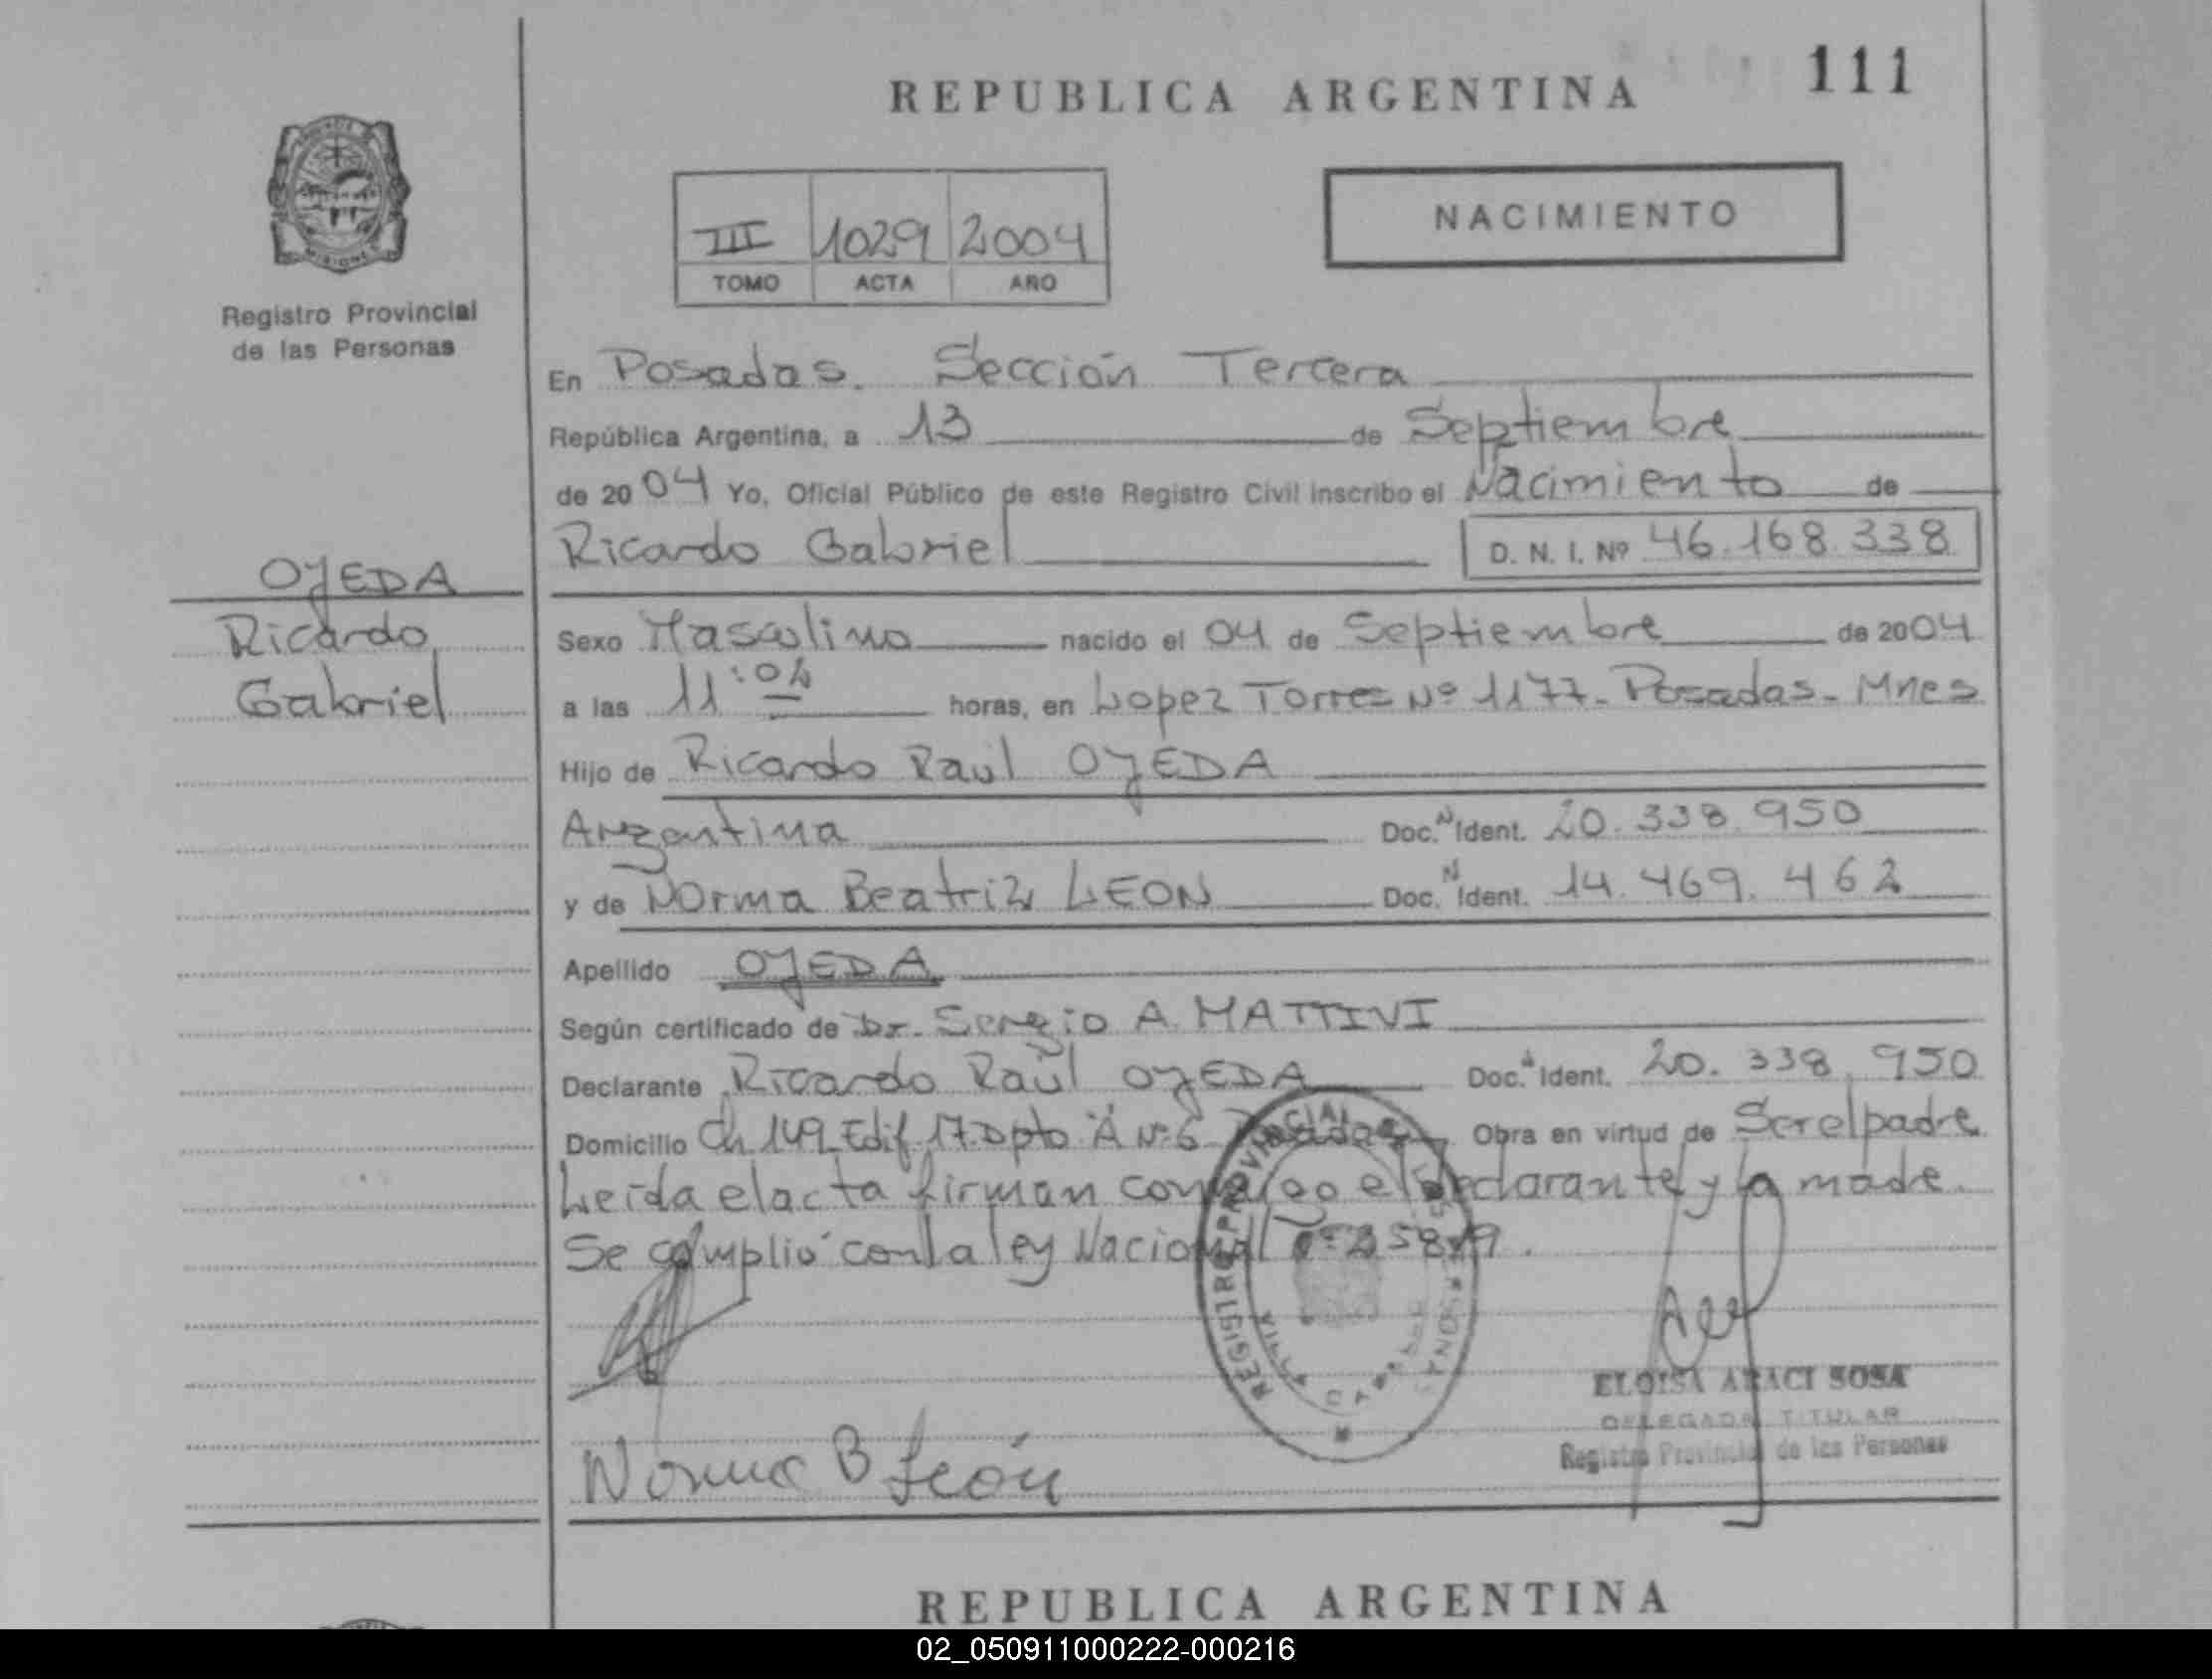 REPUBLICA ARGENTINA 111
III 1029 2004
TOMO ACTA AÑO
NACIMIENTO
MISIONES
Registro Provincial
de las Personas
OJEDA
Ricardo
Gabriel
En Posadas. Sección Tercera
República Argentina, a 13 de Septiembre
de 2004 Yo, Oficial Público de este Registro Civil inscribo el Nacimiento de
Ricardo Gabriel D. N. I. Nº 46.168.338
Sexo Masculino nacido el 04 de Septiembre de 2004
a las 11:04 horas, en Lopez Torres Nº 1177- Posadas- Mnes
Hijo de Ricardo Raul OJEDA
Argentina Doc. N Ident. 20.338.950
y de Norma Beatriz LEON Doc. N Ident. 14.469.462
Apellido OJEDA
Según certificado de Dr. Sergio A. MATTIVI
Declarante Ricardo Raúl OJEDA Doc. Ident. 20.338.950
Domicilio Ch 149 Edif. 17 Dpto A Nº 6 Posadas Obra en virtud de Ser el padre
Leida el acta firman conmigo el declarante y la madre.
Se cumplió con la ley Nacional
REGISTRO PROVINCIAL
Norma B León
ELOISA ARACI SOSA
DELEGADA TITULAR
Registro Provincial de las Personas
REPUBLICA ARGENTINA
02_050911000222-000216